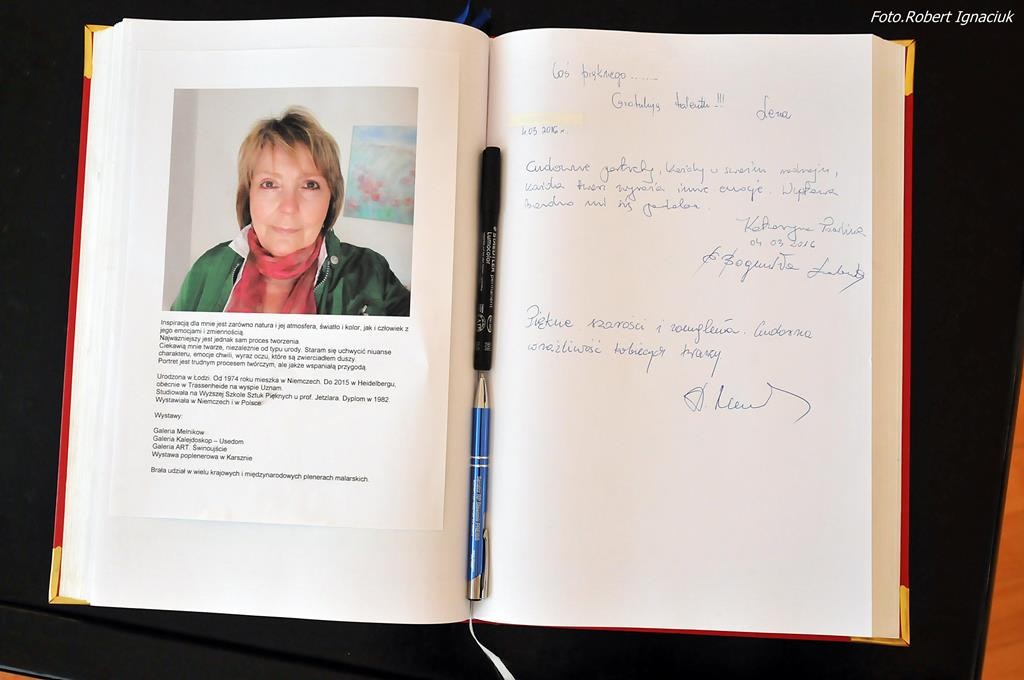 Foto.Robert Ignaciuk
Inspiracją dla mnie jest zarówno natura i jej atmosfera, światło i kolor, jak i człowiek z
jego emocjami i zmiennością.
Najważniejszy jest jednak sam proces tworzenia.
Ciekawią mnie twarze, niezależnie od typu urody. Staram się uchwycić niuanse
charakteru, emocje chwili, wyraz oczu, które są zwierciadłem duszy.
Portret jest trudnym procesem twórczym, ale jakże wspaniałą przygodą.
Urodzona w Łodzi. Od 1974 roku mieszka w Niemczech. Do 2015 w Heidelbergu,
obecnie w Trassenheide na wyspie Uznam.
Studiowała na Wyższej Szkole Sztuk Pięknych u prof. Jetzlara. Dyplom w 1982.
Wystawiała w Niemczech i w Polsce.
Wystawy:
Galeria Melnikow
Galeria Kalejdoskop – Usedom
Galeria ART. Świnoujście
Wystawa poplenerowa w Karsznie
Brała udział w wielu krajowych i międzynarodowych plenerach malarskich.
STAEDTLER permanent
Lumocolor
Coś pięknego......
Gratuluję talentu!!!
Lena
4.03 2016 r.
Cudowne portrety, każdy w swoim rodzaju,
każda twarz wyraża inne emocje. Wystawa
bardzo mi się podoba.
Katarzyna
04 03 2016
Bogumiła
Piękne szarości i zamglenia. Cudowna
wrażliwość kobiecych twarzy